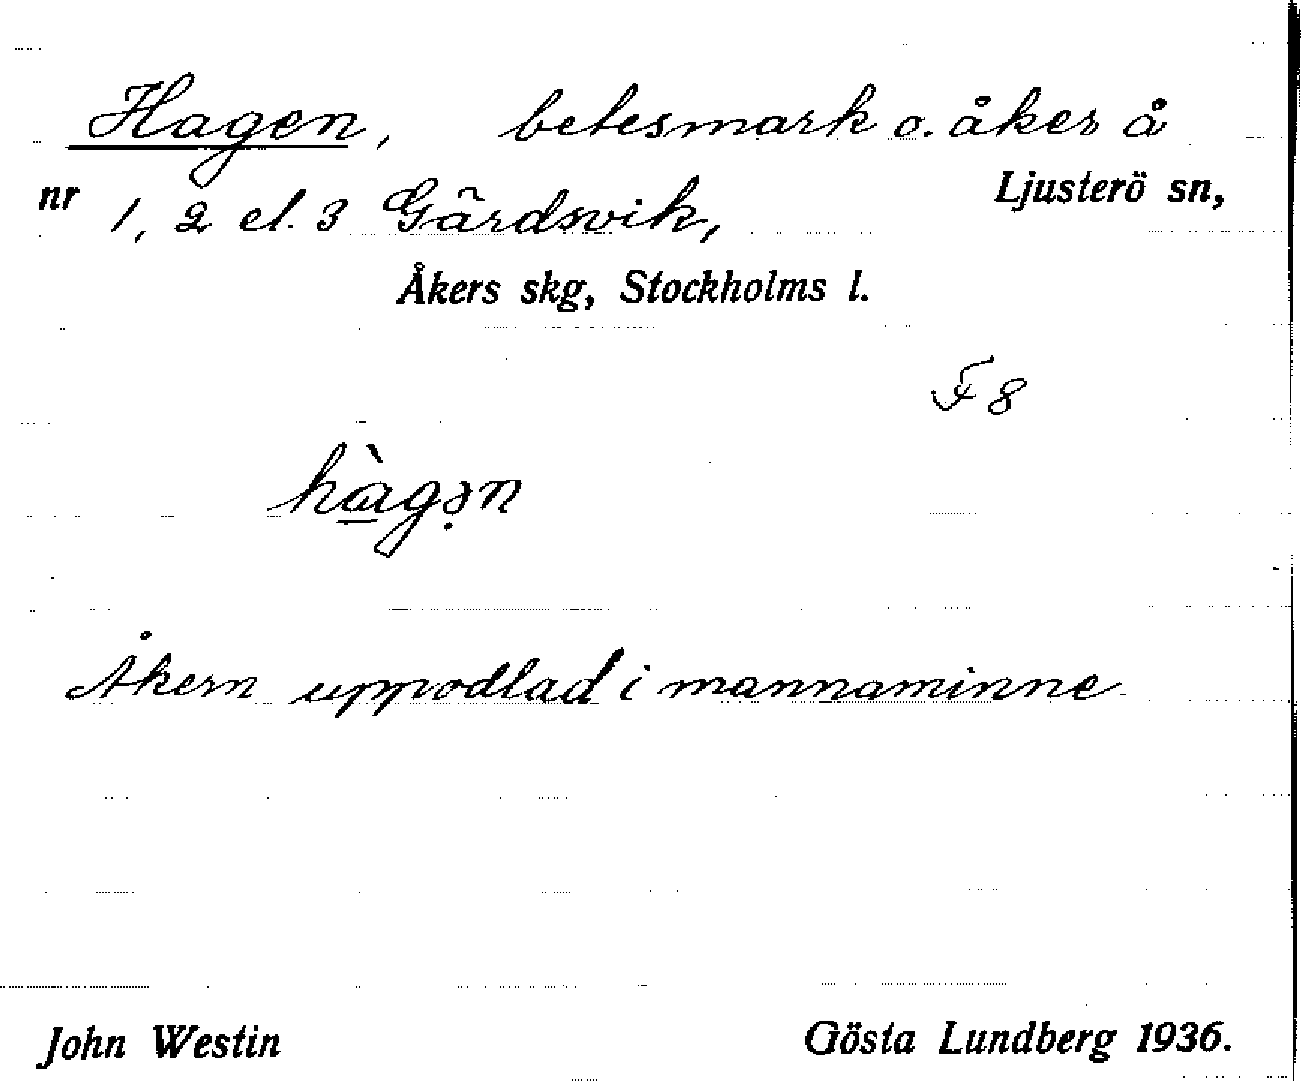 Hagen, betesmark o. åker å
nr 1, 2 el. 3 Gärdsvik, Ljusterö sn,
Åkers skg, Stockholms l.
F 8
hàgə̣n
Åkern uppodlad i mannaminne
John Westin Gösta Lundberg 1936.